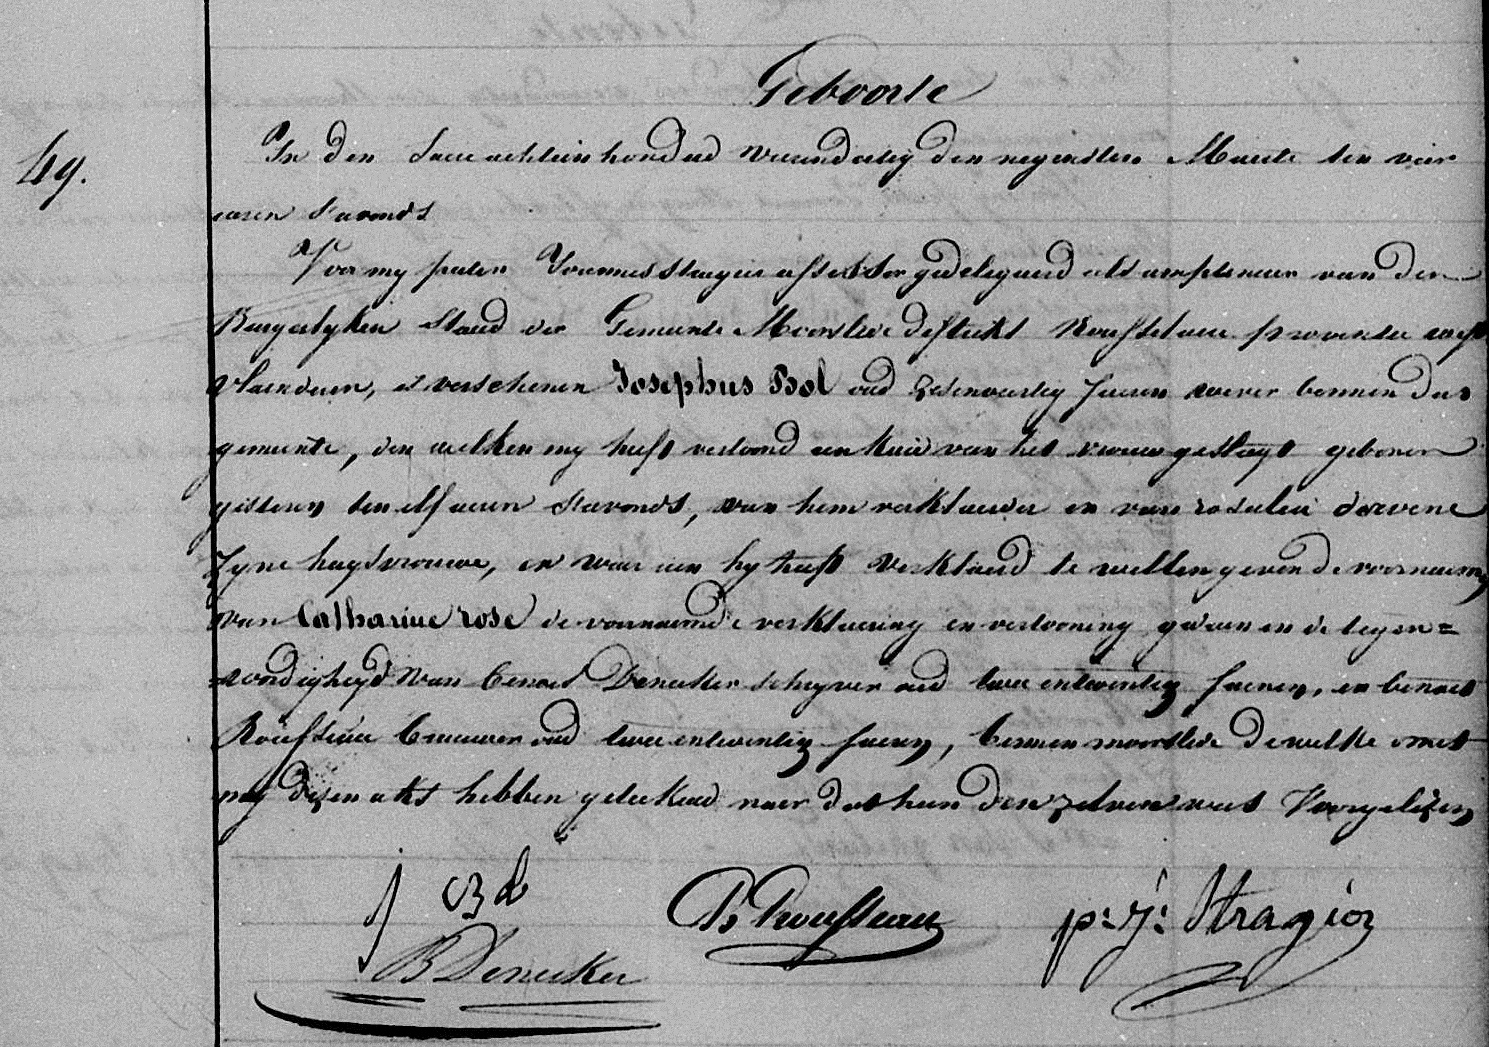 Geboorte
49.
In den Jaere achtien honderd vierendertig den negensten Maerte ten vier
uren s'avonds
Voor my peter Joannes Stragier assessor gedelegeerd als amptenaer van den
Burgerlyken Staed der Gemeente Moorslede destrikt Rousselaere provintie west
vlaenderen, is verschenen Josephus Bol oud zesenveertig jaeren wever binnen des
gemeente, den welken my heeft vertoond een kind van het vrouwgeslagt geboren
gisteren ten elf ueren s'avonds, van hem verklaerder en van rosalia dervene
Zyne huysvrouwe, en waer aen hy heeft verklaerd te willen geven de voornaemen
van Catharine rose de voornoemde verklaering en vertooning gedaen en de tegen=
=wordigheyd van benoit Denecker schryver oud twee entwentig jaeren, en benoit
Rousseau brauwer oud twee entwentig jaeren, binnen moorslede dewelke met
my dezen akt hebben geteekend naer dat hun denzelven was Voorgelezen
J Bol
B Rousseau
p: J: Stragier
B Denecker